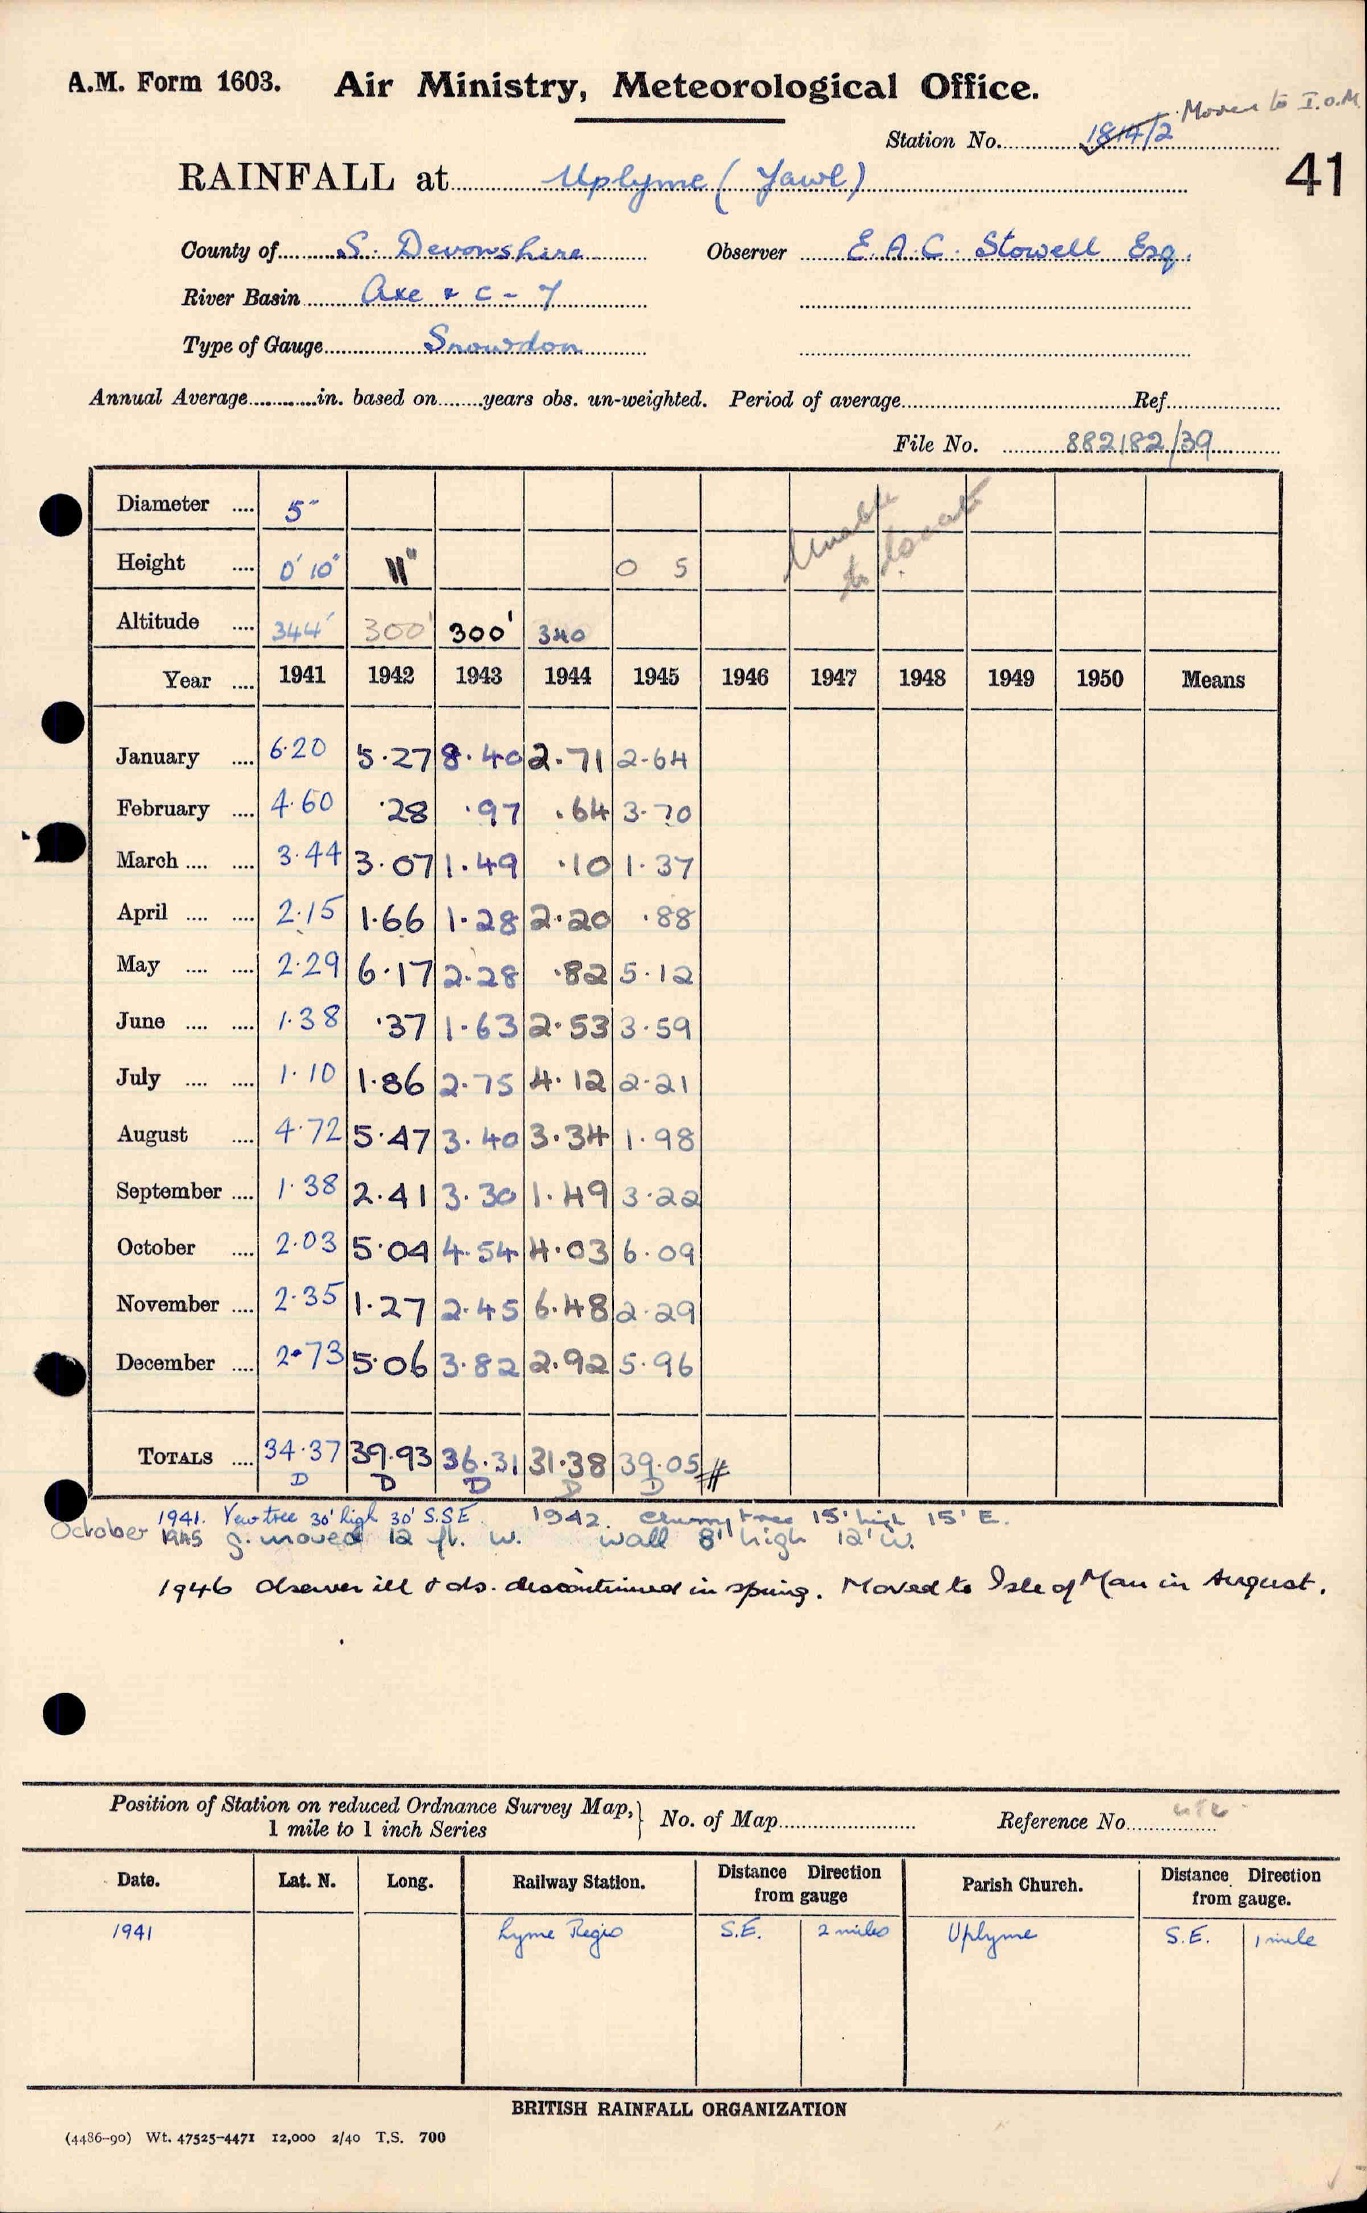 A.M. Form 1603. Air Ministry, Meteorological Office.
Moved to I.o.M
Station No. 1814/2
RAINFALL at Uplyme (Yawl)
41
County of S. Devonshire Observer E.A.C. Stowell Esq.
River Basin Axe & c - 7
Type of Gauge Snowdon
Annual Average in. based on years obs. un-weighted. Period of average Ref.
File No. 882182/39
Diameter 5"
Height 0' 10" 11" 0 5
Unable to locate
Altitude 344' 300' 300' 340
Year 1941 1942 1943 1944 1945 1946 1947 1948 1949 1950 Means
January 6.20 5.27 8.40 2.71 2.64
February 4.60 .28 .97 .64 3.70
March 3.44 3.07 1.49 .10 1.37
April 2.15 1.66 1.28 2.20 .88
May 2.29 6.17 2.28 .82 5.12
June 1.38 .37 1.63 2.53 3.59
July 1.10 1.86 2.75 4.12 2.21
August 4.72 5.47 3.40 3.34 1.98
September 1.38 2.41 3.30 1.49 3.22
October 2.03 5.04 4.54 4.03 6.09
November 2.35 1.27 2.45 6.48 2.29
December 2.73 5.06 3.82 2.92 5.96
TOTALS 34.37 39.93 36.31 31.38 39.05 #
D D D D D
1941. Yew tree 30' high 30' S.S.E. 1942. tree 15' high 15' E.
October 1945 g. moved 12 ft. W. wall 8' high 12' W.
1946 Observer ill & obs. discontinued in spring. Moved to Isle of Man in August.
Position of Station on reduced Ordnance Survey Map,
1 mile to 1 inch Series } No. of Map Reference No.
Date. Lat. N. Long. Railway Station. Distance Direction from gauge Parish Church. Distance Direction from gauge.
1941 Lyme Regis S.E. 2 miles Uplyme S.E. 1 mile
BRITISH RAINFALL ORGANIZATION
(4486-90) Wt. 47525-4471 12,000 2/40 T.S. 700